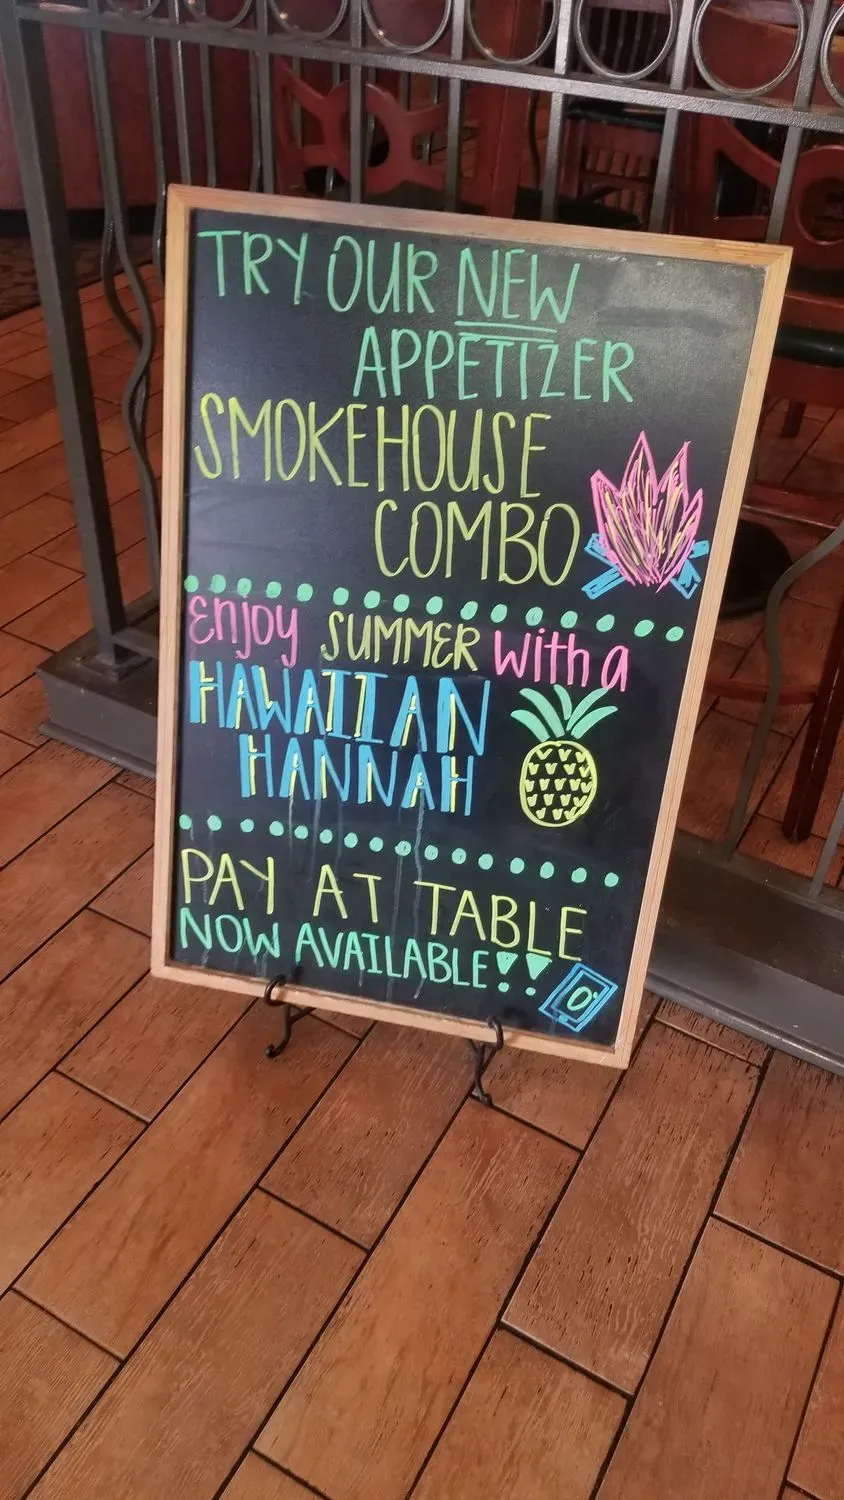 TRY OUR NEW
APPETIZER
SMOKEHOUSE
COMBO
Enjoy SUMMER with a
HAWAIIAN
HANNAH
PAY AT TABLE
NOW AVAILABLE!!
O'